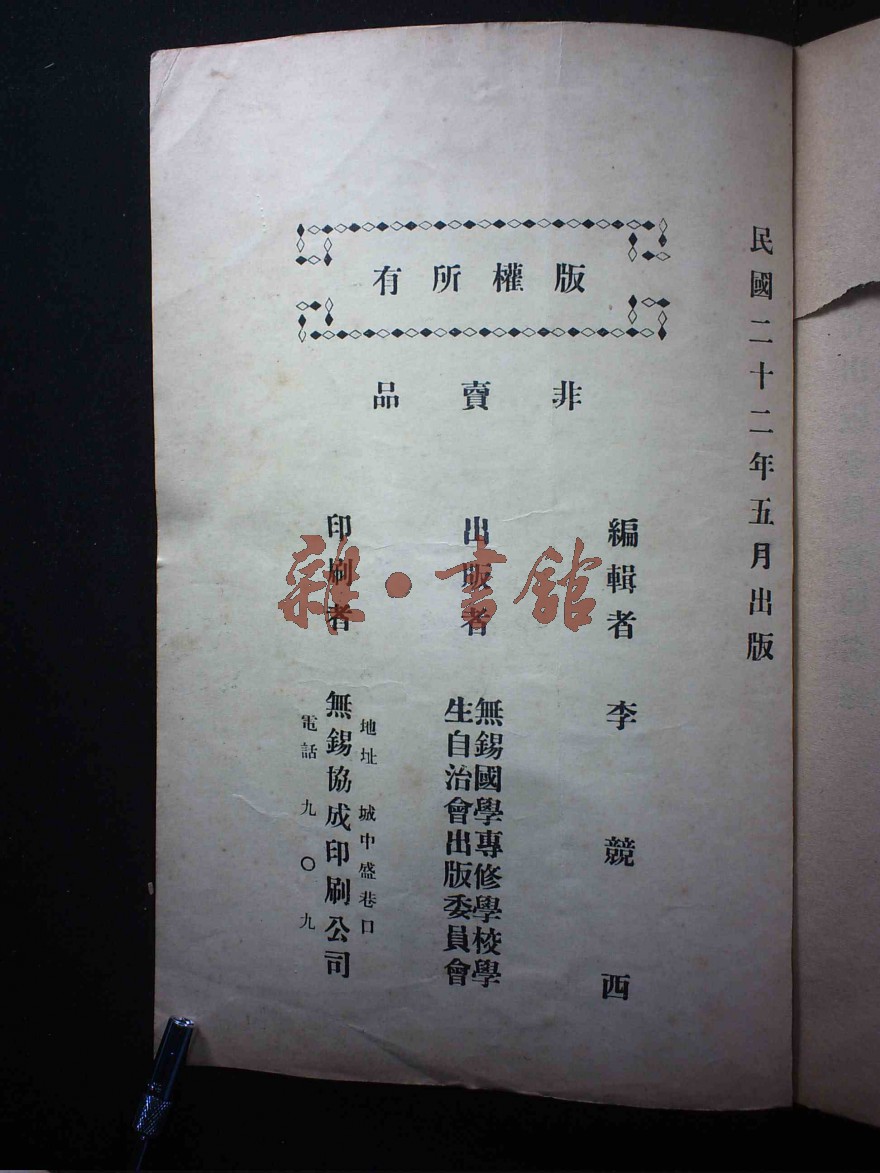 民國二十二年五月出版
版權所有
非賣品
編輯者 李競西
出版者 無錫國學專修學校學
生自治會出版委員會
印刷者 無錫協成印刷公司
地址 城中盛巷口
電話 九〇九
雜·書館